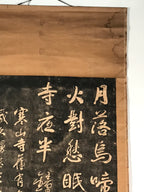 月落烏啼
火對愁眠
寺夜半鐘
寒山寺舊有